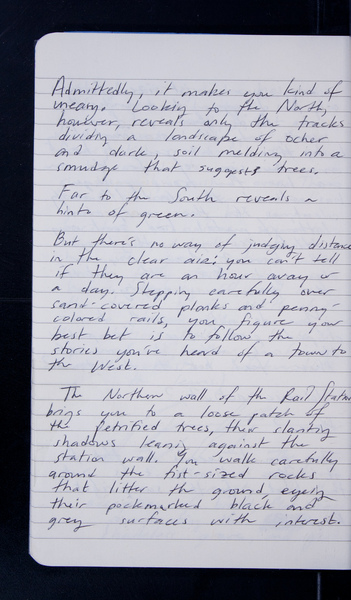 Admittedly, it makes you kind of
uneasy. Looking to the North,
however, reveals only the tracks
dividing a landscape of ocher
and dark, soil melding into a
smudge that suggests trees.
Far to the South reveals a
hint of green.
But there's no way of judging distance
in the clear air: you can't tell
if they are an hour away or
a day. Stepping carefully over
sand-covered planks and penny-
colored rails, you figure your
best bet is to follow the
stories you've heard of a town to
the West.
The Northern wall of the Rail Station
brings you to a loose patch of
the petrified trees, their slanting
shadows leaning against the
station wall. You walk carefully
around the fist-sized rocks
that litter the ground, eyeing
their pockmarked black and
grey surfaces with interest.